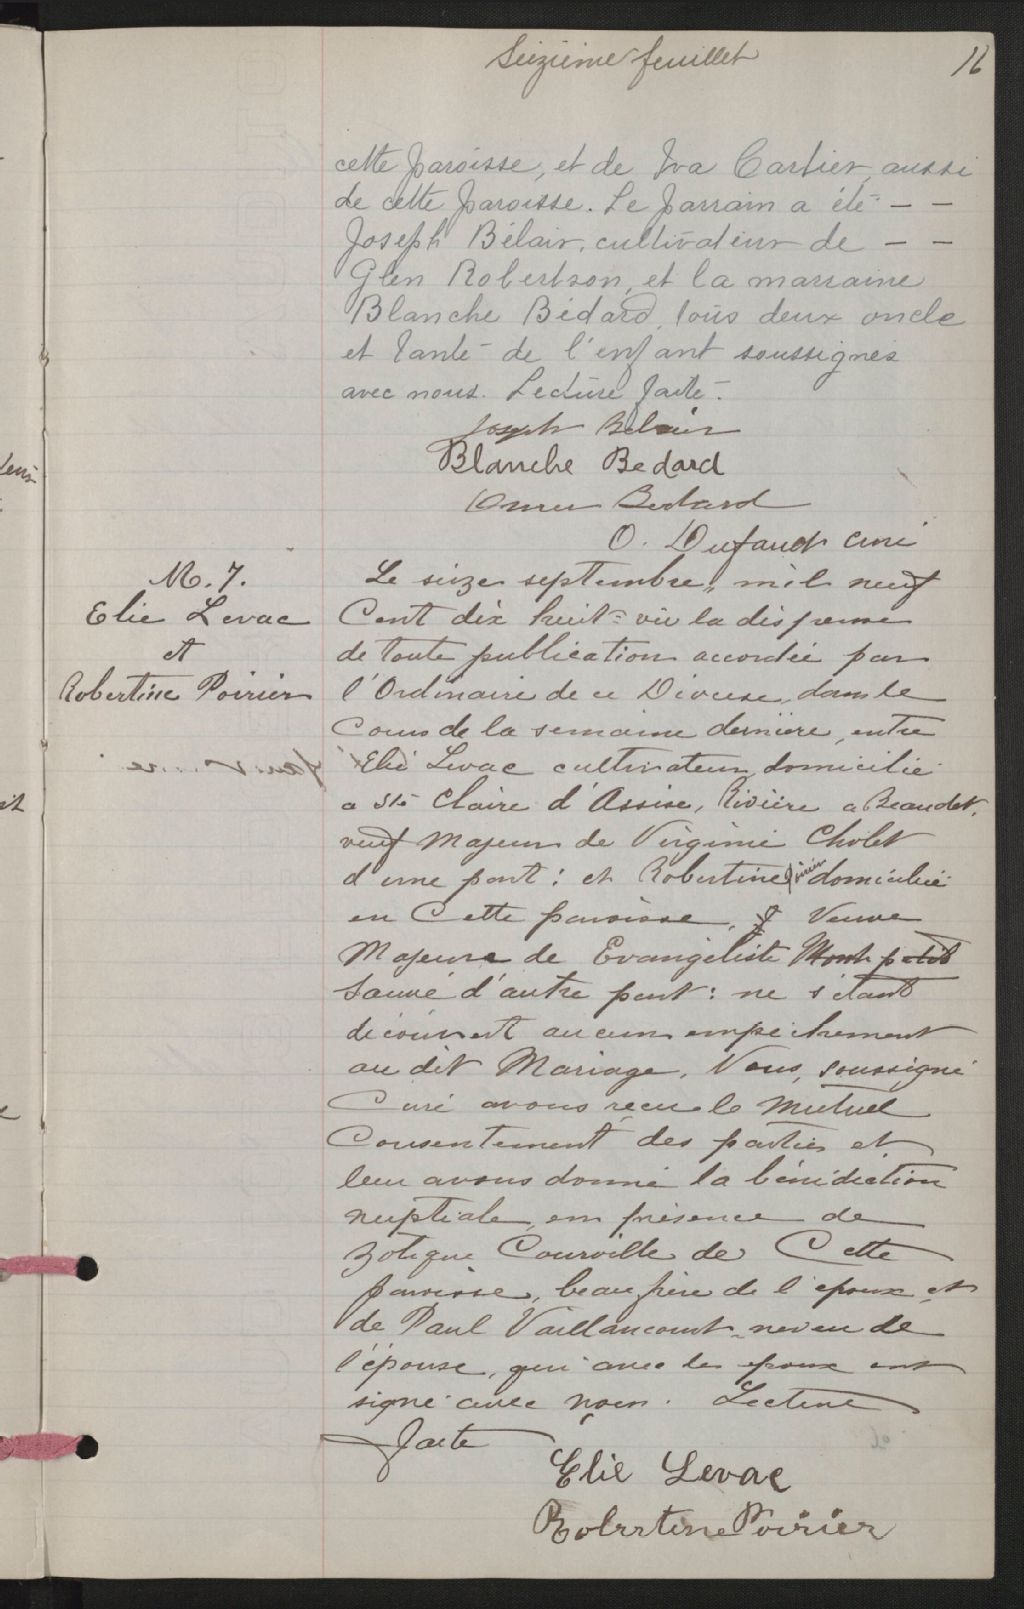 Seizième feuillet
16
cette paroisse, et de Iva Cartier, aussi
de cette paroisse. Le parrain a été - -
Joseph Bélair, cultivateur de - -
Glen Robertson, et la marraine
Blanche Bédard, tous deux oncle
et tante de l'enfant soussignés
avec nous. Lecture faite.
Joseph Belair
Blanche Bedard
Omer Bedard
O. Dufault curé
M. 7.
Elie Levac
et
Robertine Poirier
Le seize septembre, mil neuf
Cent dix huit vu la dispense
de toute publication accordée par
l'Ordinaire de ce Diocese, dans le
Cours de la semaine dernière, entre
Elie Levac cultivateur, domicilié
a Ste Claire d'Assise, Rivière a Beaudet,
veuf Majeur de Virginie Cholet
d'une part : et Robertine Poirier domiciliée
en Cette paroisse, Veuve
Majeure de Evangeliste Montpetit
Sauvé d'autre part : ne s'étant
découvert aucun empêchement
au dit Mariage, Nous, soussigné
Curé avons reçu le Mutuel
Consentement des parties et
leur avons donné la bénédiction
nuptiale, en présence de
Zotique Courville de Cette
paroisse, beau père de l'époux et
de Paul Vaillancourt neveu de
l'épouse, qui avec les epoux ont
signé avec nous. Lecture
faite
Elie Levac
Robertine Poirier